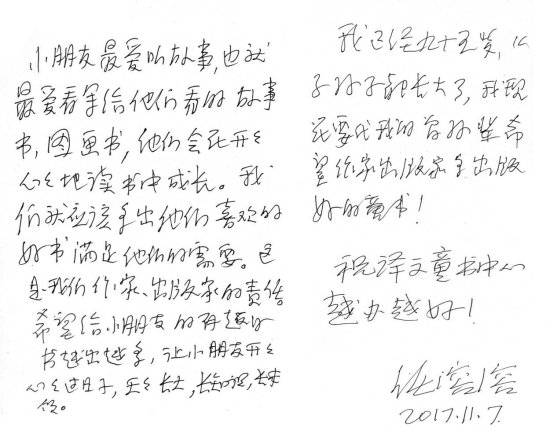 小朋友最爱听故事,也就
最爱看写给他们看的故事
书,图画书,他们会在开开
心心地读书中成长。我
们就应该多出他们喜欢的
好书满足他们的需要。这
是我们作家、出版家的责任。
希望给小朋友的有趣的
书越出越多,让小朋友开开
心心过日子,天天长大,长知识,长本
领。
我已经九十五岁,儿
子孙子都长大了,我现
在要代我的曾孙辈希
望作家出版家多出版
好的童书!
祝译文童书中心
越办越好!
任溶溶
2017.11.7.